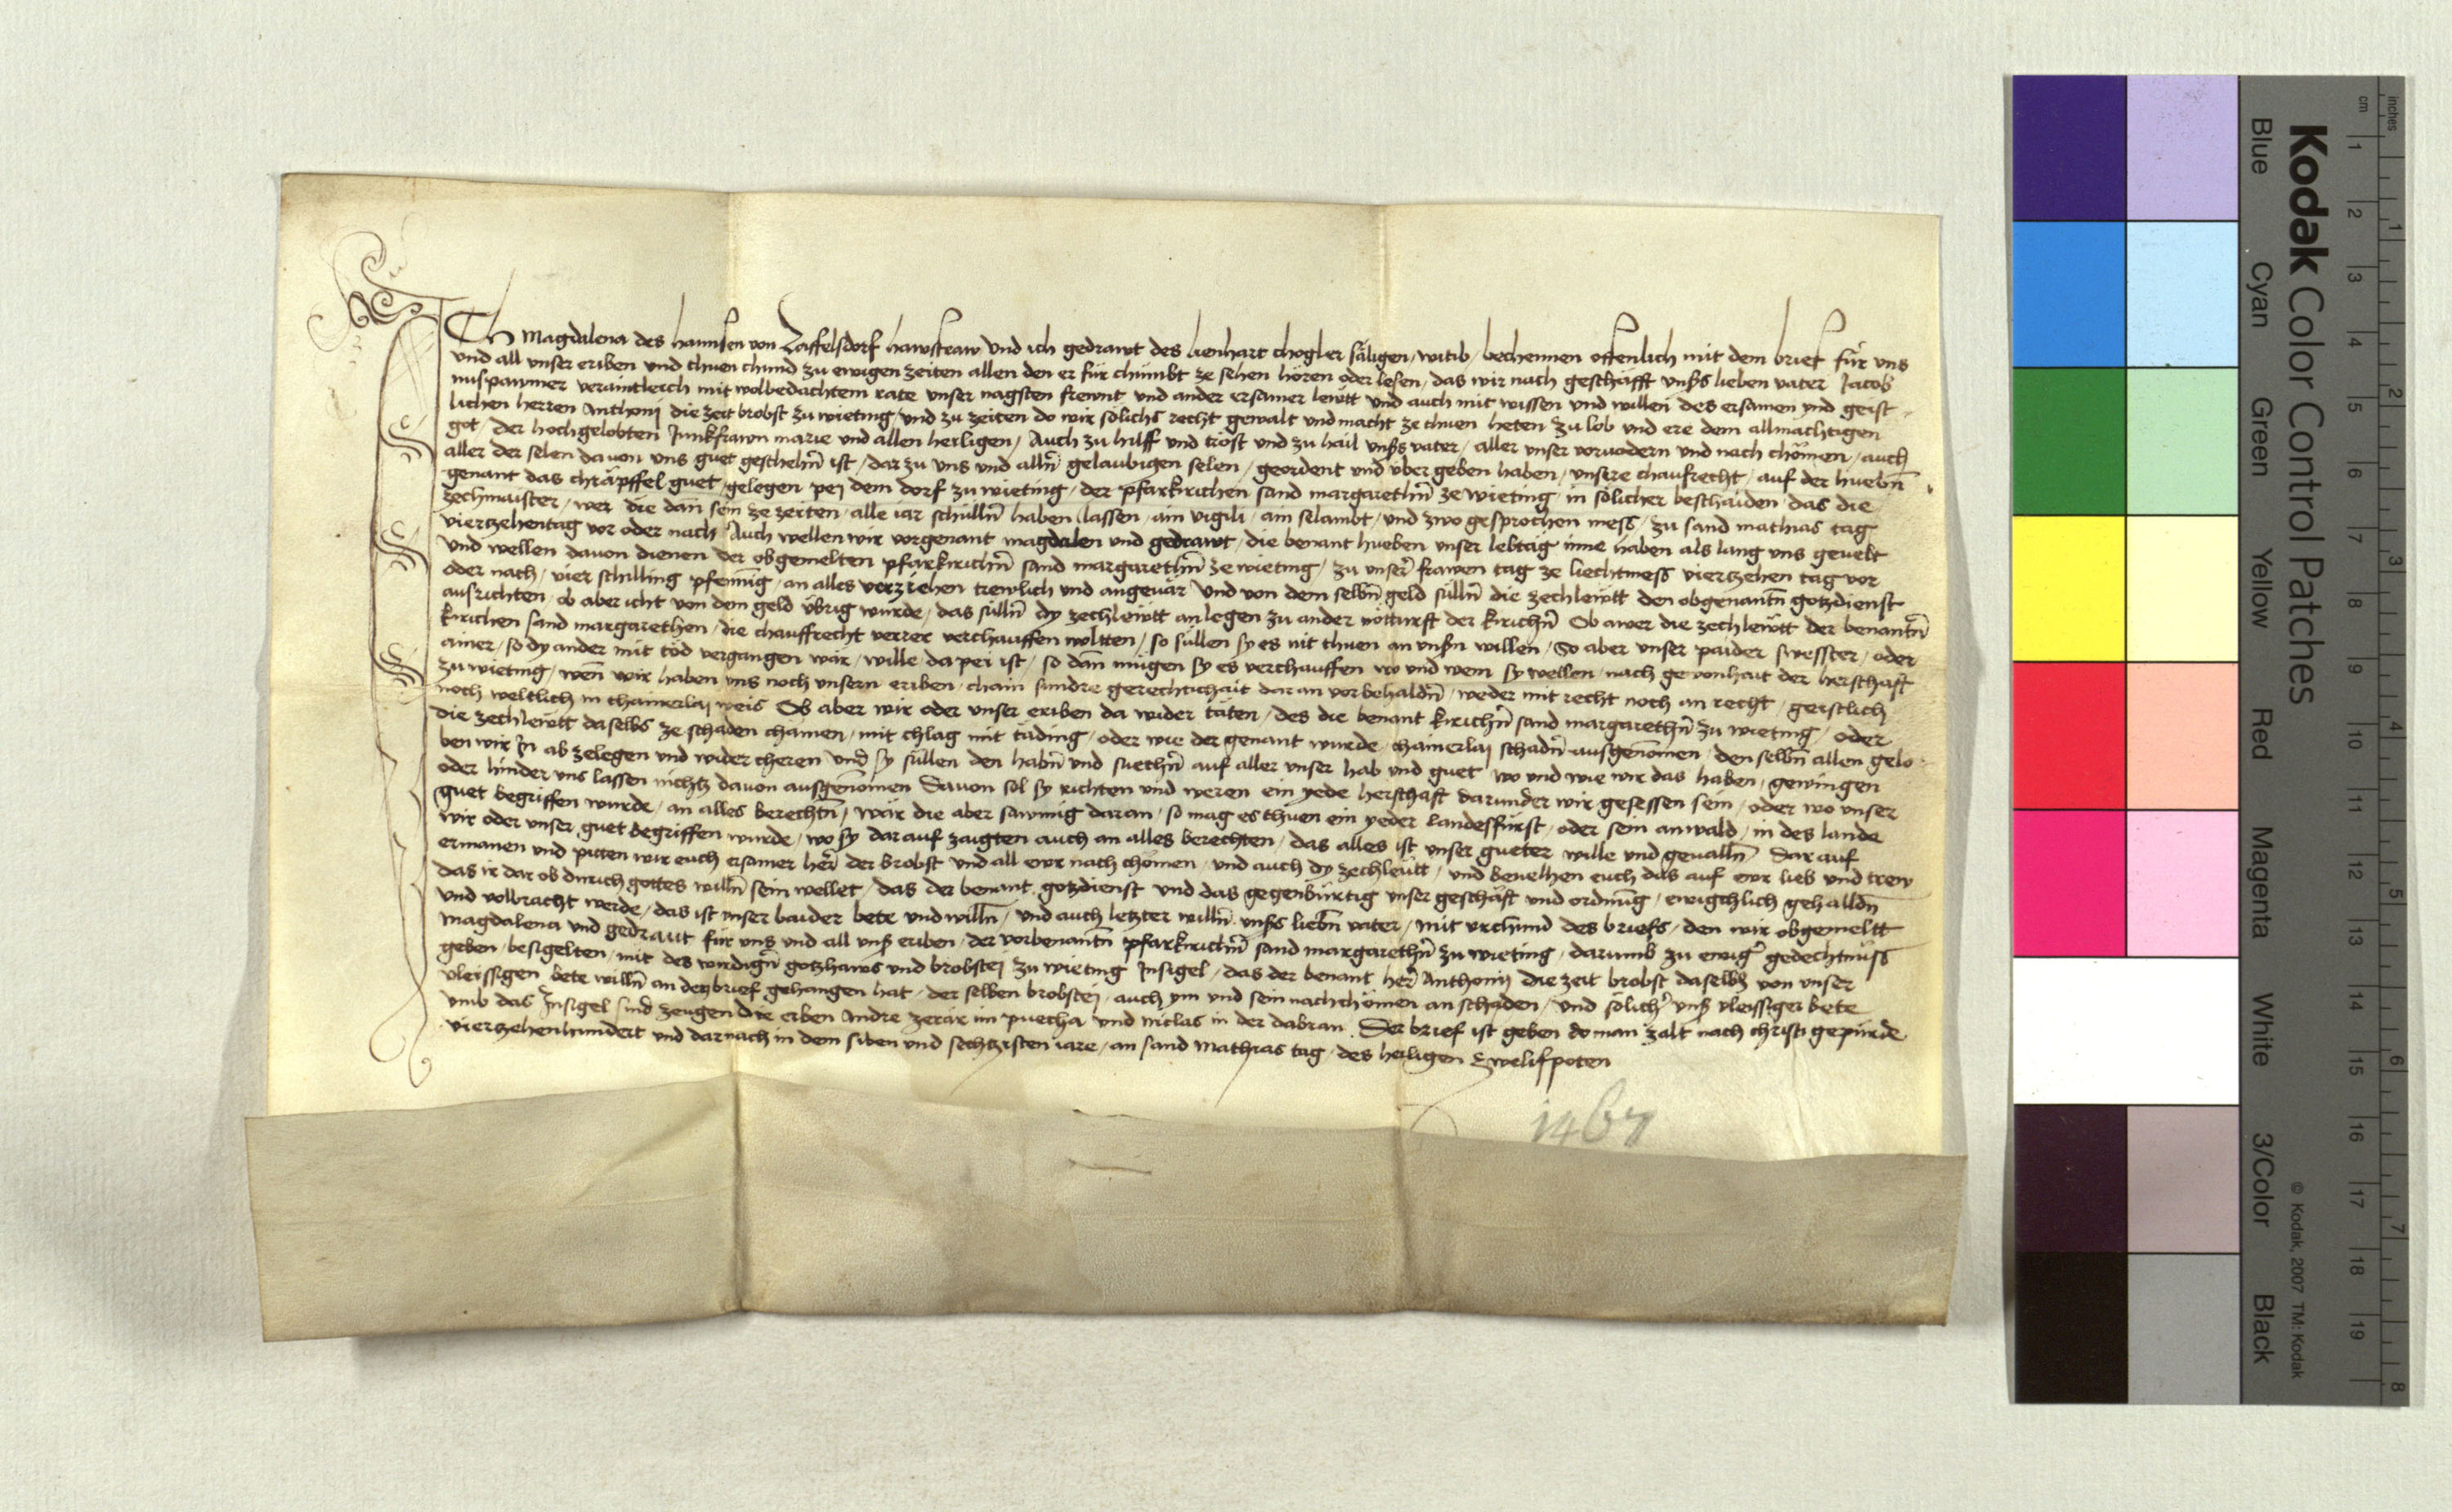 Ich Magdalena des hannsen von Zaffelsdorf hawsfraw Und ich gedrawt des lienhart chogler säligen / witib / bechennen offenlich mit dem brief für vns
und all vnser eriben und thuen chund zu ewigen zeiten allen den er für chumbt ze sehen hören oder lesen / das wir nach geschäfft vnsers lieben vater Jacob
nuspawmer veraintleich mit wolbedachtem rate unser nagsten frewnt und ander ersamer lewtt und auch mit wissen und willen des ersamen vnd geist
lichen herren Anthonij die zeit brobst zu wieting / und zu zeiten do wir solichs recht gewalt und macht ze thuen heten zu lob und ere dem allmächtigen
got / der hochgelobten Junkfrawn marie und allen heiligen / Auch zu hilff und trost und zu hail vnsers vater / aller unser voruodern und nach chömen / auch
aller der selen dauon uns guet geschehn̄ ist / dar zu vns und alln̄ gelaubigen selen / geordent und über geben haben / unsere chaufrecht / auf der huebn̄
genant das chräpffel guet / gelegen pej dem dorf zu wieting / der pfarkirichen sand margarethn̄ ze wieting / in solicher beschaiden das die
zechmaister / wer die dan̄ sein ze zeiten / alle iar schulln̄ haben lassen / ain vigili / ain selambt / und zwo gesprochen mess / zu sand mathias tag
viertzehentag vor oder nach Auch wellen wir vorgenant magdalen und gedrawt / die benant hueben unser lebtag inne haben als lang uns geuelt
Und wellen dauon dienen der obgemelten pfarkirichn̄ sand margarethn̄ ze wieting / zu unser frawen tag ze liechtmess viertzehen tag vor
oder nach / vier schilling pfening / an alles verziehen trewlich und angeuär Und von dem selbn̄ geld sulln̄ die zechlewtt den obgenantn̄ gotzdienst
ausrichten / ob aber icht von dem geld übrig wurde / das sulln̄ dy zechlewtt an legen zu ander notturft der kirichn̄ Ob awer die zechlewtt der benantn̄
kirichen sand margarethen / die chauffrecht verrer verchauffen wolten / so sullen sy es nit thuen an vnsn̄ willen / So aber unser paider swesster / oder
ainer / so dy ander mit tod vergangen wär / wille da pei ist / so dan̄ mugen sy es verchauffen wo und wem sy wellen / nach gewonhait der herschaft
zu wieting / wen̄ wir haben uns noch unsern eriben / chain sundre gerechtichait dar an vorbehaldn̄ / weder mit recht noch an recht / geistlich
noch weltlich in chainerlaj weis Ob aber wir oder unser eriben da wider täten / des die benant kirichn̄ sand margarethn̄ zu wieting / oder
die zechlewtt daselbs ze schaden chämen / mit chlag mit täding / oder wie der genant wurde / chainerlaj schadn̄ ausgenomen / den selbn̄ allen gelo
ben wir In ab zelegen und wider cheren Und sy sullen den habn̄ und suechn̄ auf aller unser hab und guet / wo und wie wir das haben / gewingen
oder hinder uns lassen nichtz dauon ausgenomen Dauon sol sy richten und weren ein yede herschaft darunder wir gesessen sein / oder wo unser
guet begriffen wurde / an alles berechtn̄ / wär die aber sawmig daran / so mag es thuen ein yeder landesfürst / oder sein anwald / in des lande
wir oder unser guet begriffen wurde / wo sy dar auf zaigten auch an alles berechten / das alles ist unser gueter wille und geualln̄ Dar auf
ermanen und pitten wir euch ersamer her̄ der brobst und all ewr nach chomen / und auch dy zechlewtt / und beuelhen euch das auf ewr lieb und trew
das ir dar ob durich gottes willn̄ sein wellet / das der benant gotzdienst und das gegenbürtig unser geschäft und ordnung / ewigchlich gehalldn̄
und volbracht werde / das ist unser baider bete und willn̄ / und auch letzter willn̄ vnsers liebn̄ vater / Mit vrchund des briefs / den wir obgemeltt
Magdalena und gedraut für uns und all vnser eriben / der vorbenantn̄ pfarkirichn̄ sand margarethn̄ zu wieting / darumb zu ewiger gedechtnüss
geben / besigelten / mit des wirdign̄ gotzhaws und brobstej zu wieting Insigel / das der benant her̄ Anthonij die zeit brobst daselbs von unser
vleissigen bete willn̄ an den brief gehangen hat / der selben brobstej / auch ym und sein nachchömen an schaden / und solicher vnser vleissiger bete
vmb das Insigel sind zeugen die erben Andre zerar im puecha und niclas in der dabran Der brief ist geben do man zalt nach christi gepurde
vierzehenhundert und darnach in dem siben und sechtzisten iare / an sand Mathias tag / des heiligen Zwelifpoten
1467
Kodak Color Control Patches
Blue Cyan Green Yellow Red Magenta White 3/Color Black
© Kodak, 2007 TM: Kodak
cm 1 2 3 4 5 6 7 8 9 10 11 12 13 14 15 16 17 18 19
inches 1 2 3 4 5 6 7 8